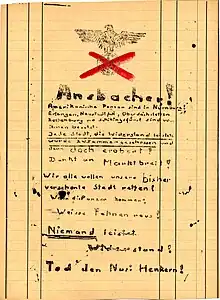 Ansbacher!
Amerikanische Panzer sind in Nürnberg
Erlangen, Neustadt, Oberdachstetten
Rothenburg u. Schillingsfürst sind von
ihnen besetzt.
Jede Stadt, die Widerstand leistet,
wurde zusammengeschossen und
dann doch erobert!
Denkt an Marktbreit!
Wir alle wollen unsere bisher
verschonte Stadt retten!
Weisse Fahnen raus!
Niemand leistet
Widerstand!
Tod den Nazi Henkern!